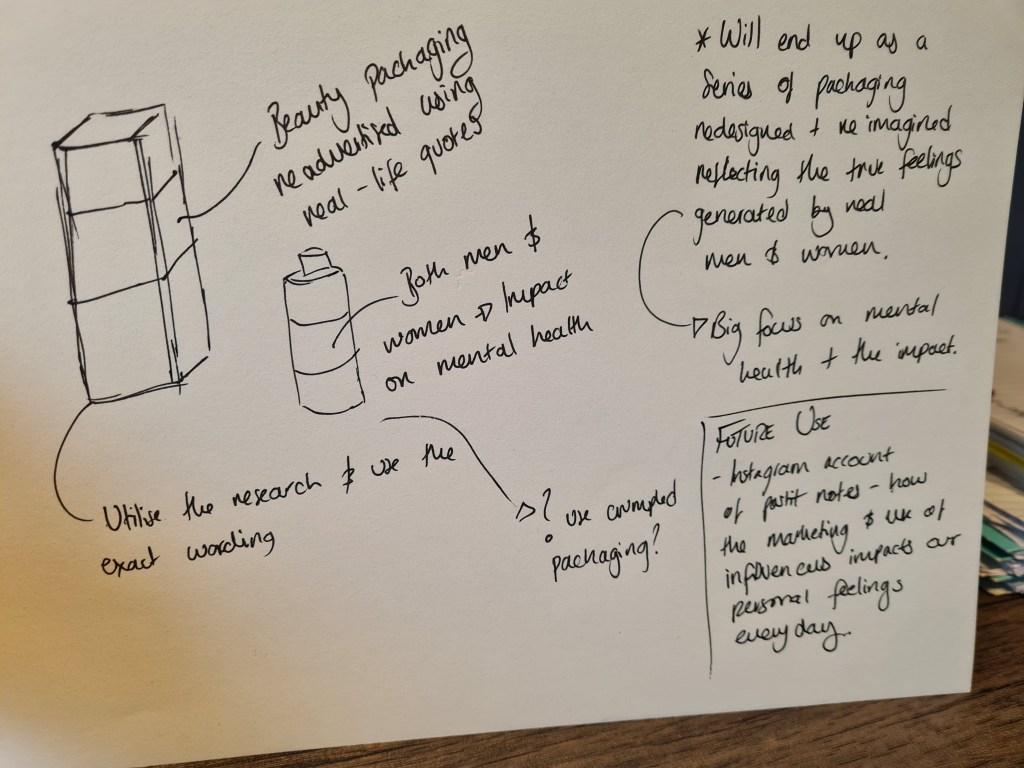 Beauty packaging
readvertised using
real-life quotes
Both men &
women → Impact
on mental health
Utilise the research & use the
exact wording
? use crumpled
packaging?
* Will end up as a
Series of packaging
redesigned + reimagined
reflecting the true feelings
generated by real
men & women.
Big focus on mental
health + the impact.
FUTURE USE
- Instagram account
of postit notes - how
the marketing & use of
influencers impacts our
personal feelings
everyday.